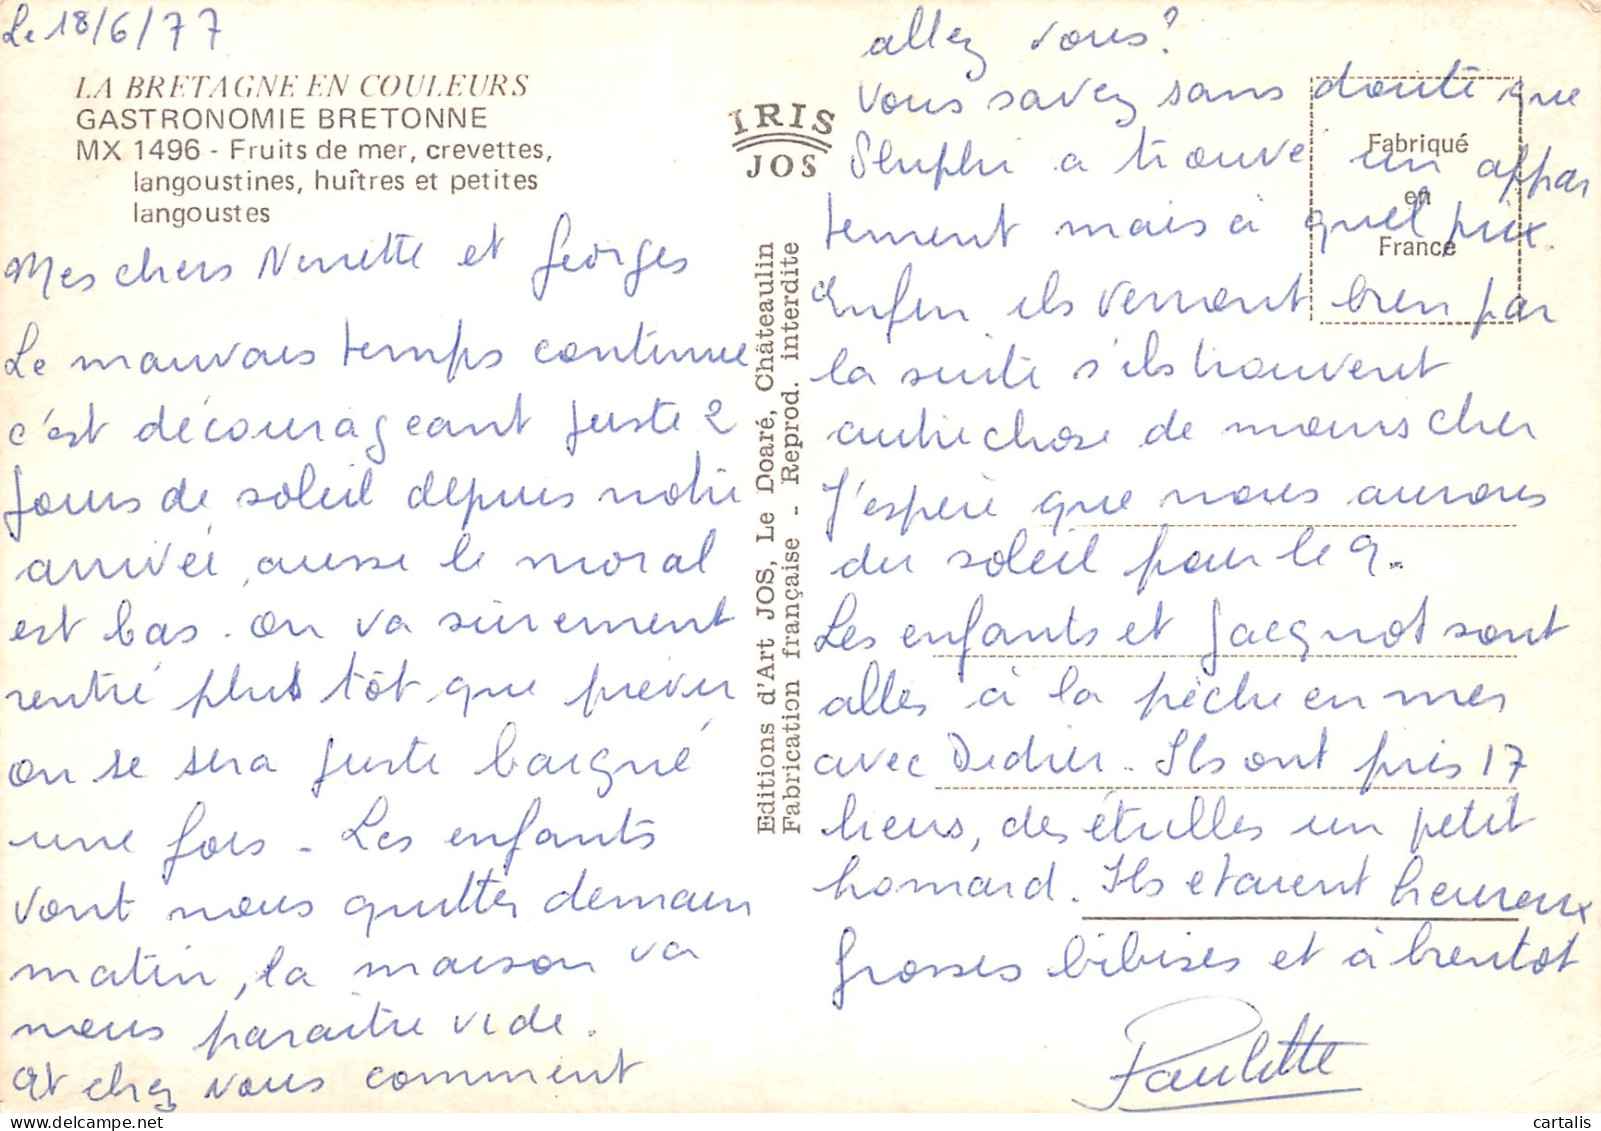 Le 18/6/77
LA BRETAGNE EN COULEURS
GASTRONOMIE BRETONNE
MX 1496 - Fruits de mer, crevettes,
langoustines, huîtres et petites
langoustes
Mes chers Nenette et Georges
Le mauvais temps continue
c'est décourageant juste 2
jours de soleil depuis notre
arrivée, aussi le moral
est bas. On va sûrement
rentré plus tôt que prévu
on se sera juste baigné
une fois - Les enfants
vont nous quitter demain
matin, la maison va
nous paraitre vide.
Et chez vous comment
IRIS
JOS
Editions d'Art JOS, Le Doaré, Châteaulin
Fabrication française - Reprod. interdite
Fabriqué
en
France
allez vous?
Vous savez sans doute que
a trouvé un appar
tement mais à quel prix.
Enfin ils verront bien par
la suite s'ils trouvent
autre chose de moins cher
J'espère que nous aurons
du soleil pour le 9.
Les enfants et Jacquot sont
allés à la pêche en mer
avec Didier - Ils ont pris 17
lieus, des étrilles un petit
homard. Ils etaient heureux
Grosses bibises et à bientot
Paulette
cartalis